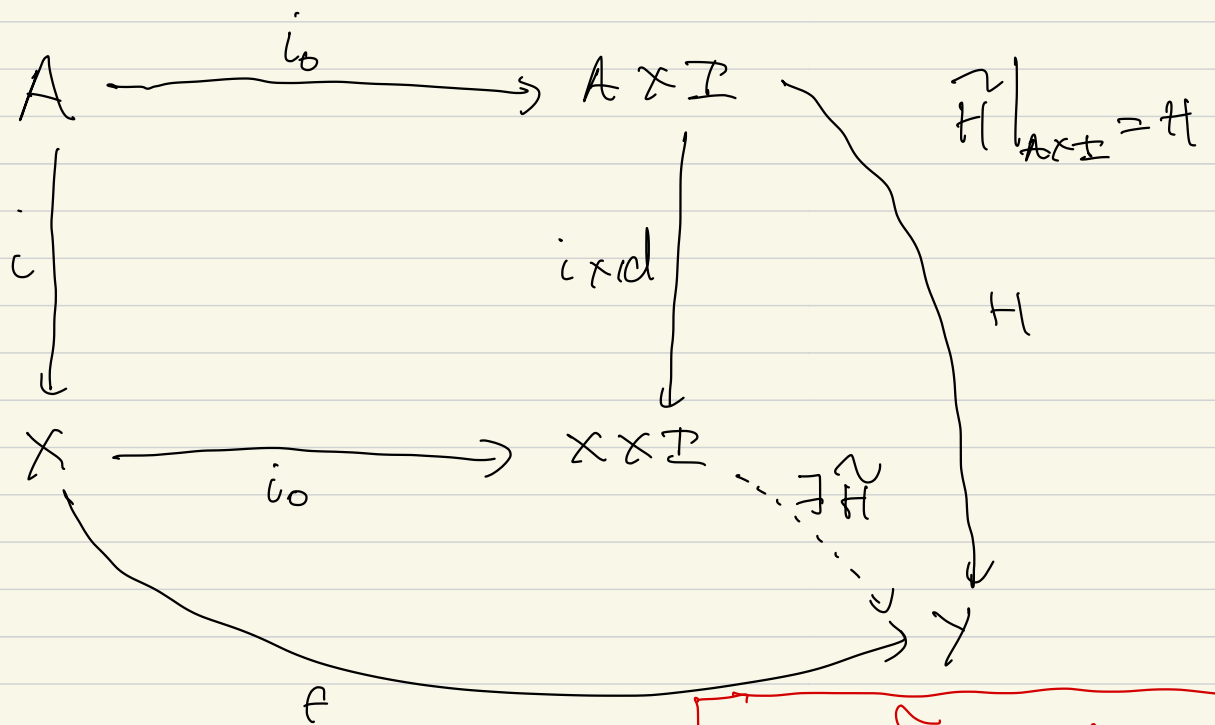 i₀
A A×I H̃|_{A×I} = H
i i×id H
X i₀ X×I ∃H̃
Y
f